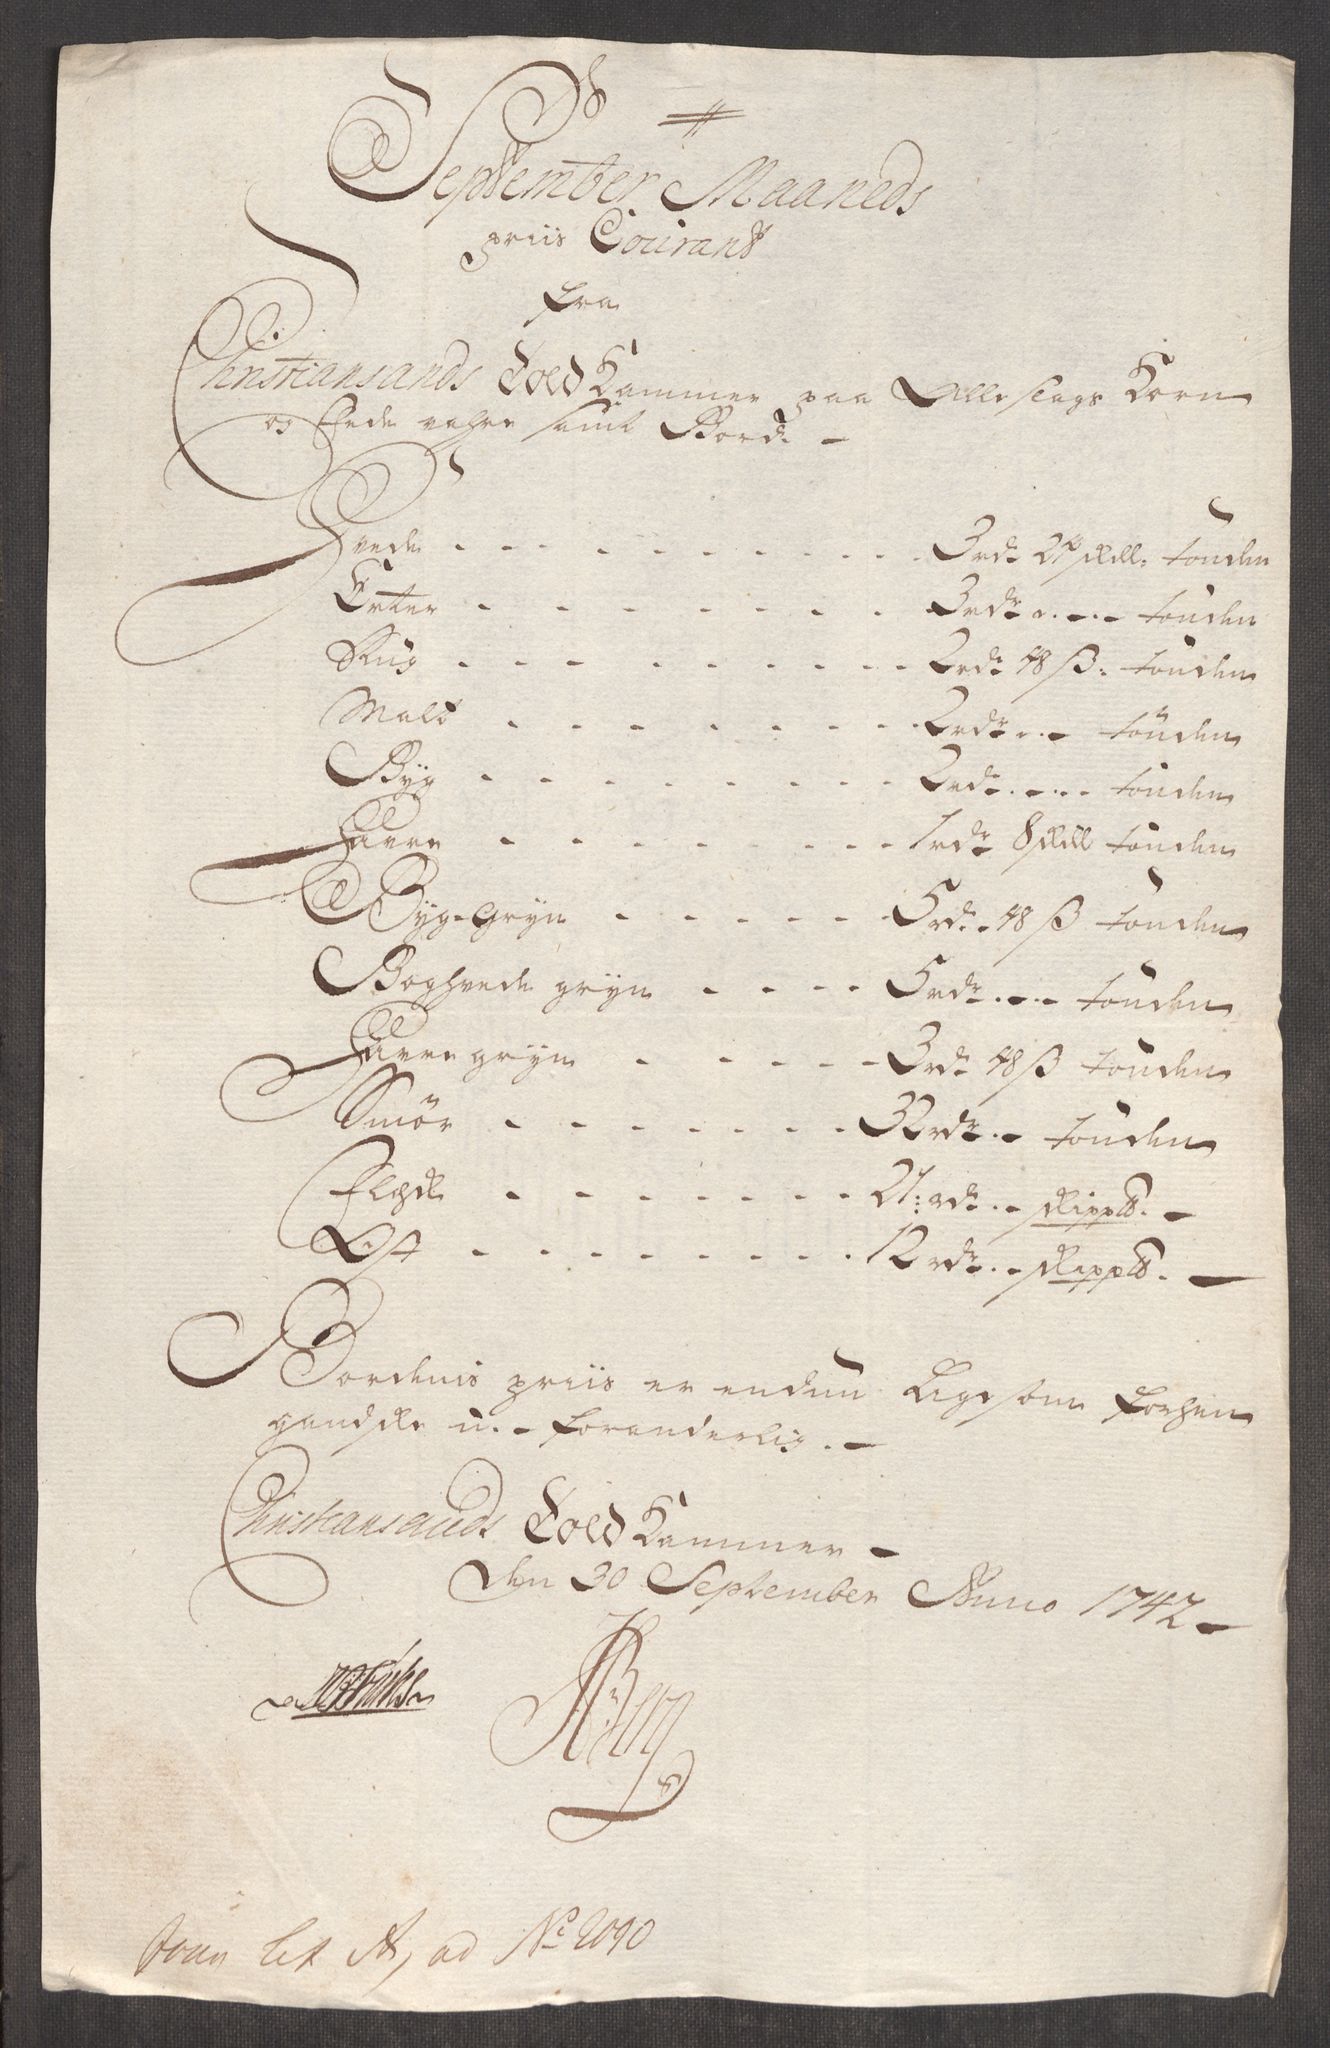 September Maaneds
priis Courant
fra
Christiansands Told Kammer paa Alle slags Korn
og Fede vahre samt Bord. -
Hvede . . . . . . . . . 3 rdr 24 skill: tonden
Erter . . . . . . . . 3 rdr . . . tonden
Rug . . . . . . . . . 2 rdr 48 ß: tonden
Malt . . . . . . . . 2 rdr . . tönden
Byg . . . . . . . . 2 rdr . . . tonden
Havre . . . . . . . . 1 rdr 8 skill tonden
Byg-Gryn . . . . . 5 rdr 48 ß tonden
Boghvede gryn . . . . 5 rdr . . . tonden
Havre gryn . . . . . 3 rdr 48 ß tonden
Smör . . . . . . . 32 rdr . . tonden
Flesk . . . . . . . 21: rdr . . skipp℔. -
Ost . . . . . . . . 12 rdr . . skipp℔. -
Bordenis priis er endnu Ligesom forhen
gandske u-foranderlig. -
Christiansands Told Kammer -
den 30 September Anno 1742 -
lit A, ad No 2090